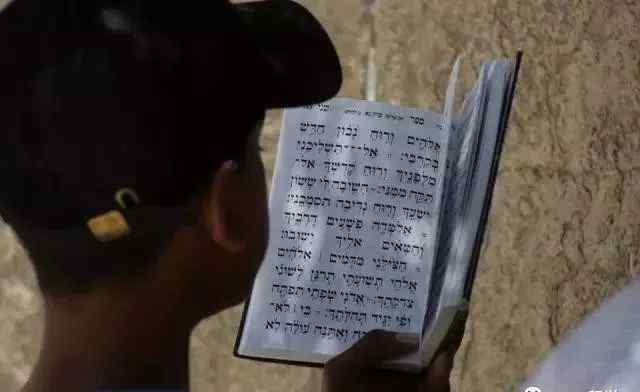 ספר
אֱלֹהִים וְרוּחַ נָכוֹן חַדֵּשׁ
בְּקִרְבִּי: אַל־תַּשְׁלִיכֵנִי
מִלְּפָנֶיךָ וְרוּחַ קָדְשְׁךָ אַל־
תִּקַּח מִמֶּנִּי: הָשִׁיבָה לִּי שְׂשׂוֹן
יִשְׁעֶךָ וְרוּחַ נְדִיבָה תִסְמְכֵנִי:
אֲלַמְּדָה פֹשְׁעִים דְּרָכֶיךָ
וְחַטָּאִים אֵלֶיךָ יָשׁוּבוּ:
הַצִּילֵנִי מִדָּמִים ׀ אֱלֹהִים
אֱלֹהֵי תְּשׁוּעָתִי תְּרַנֵּן לְשׁוֹנִי
צִדְקָתֶךָ: אֲדֹנָי שְׂפָתַי תִּפְתָּח
וּפִי יַגִּיד תְּהִלָּתֶךָ: כִּי ׀ לֹא־
וְאֶתֵּנָה עוֹלָה לֹא